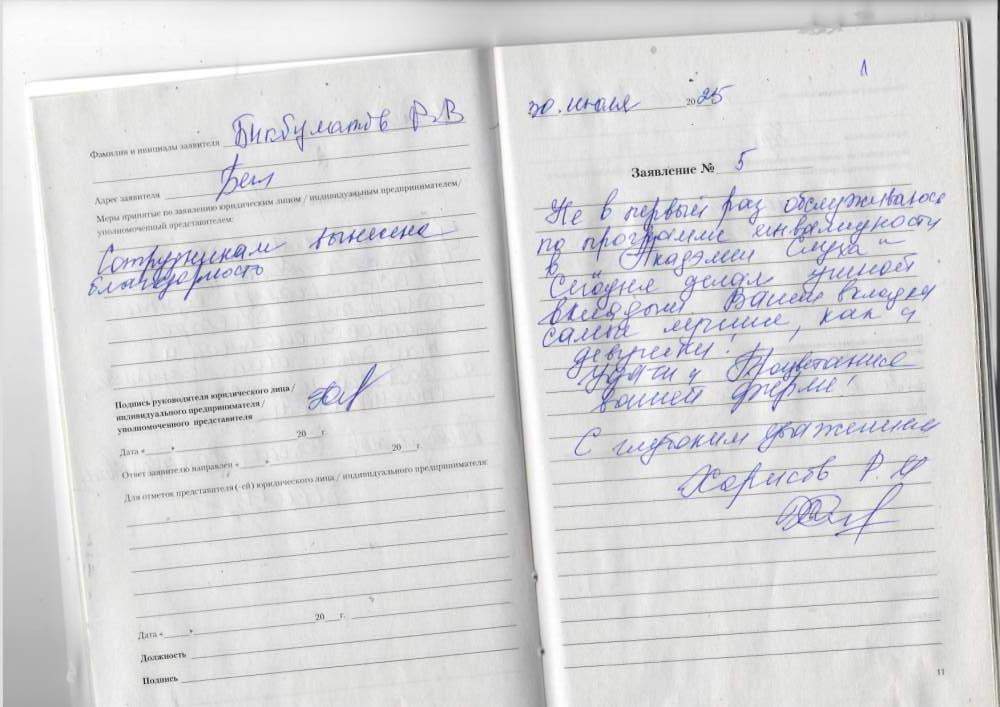 Фамилия и инициалы заявителя Бикбулатов Р.В
Адрес заявителя
Меры принятые по заявлению юридическим лицом / индивидуальным предпринимателем/
уполномоченный представителем:
Сотрудникам вынесена
благодарность
Подпись руководителя юридического лица /
индивидуального предпринимателя /
уполномоченного представителя
Дата «____» ____ 20__г.
Ответ заявителю направлен «____» ____ 20__г.
Для отметок представителя (-ей) юридического лица / индивидуального предпринимателя:
Дата «____» ____ 20__г.
Должность
Подпись
1
30. июля 2025
Заявление № 5
Не в первый раз обслуживаюсь
по программе инвалидности
в "Академии Слуха"
Сегодня делал ушной
вкладыш Ваши вкладки
самые лучшие, как и
девушки!
Удачи и Процветание
вашей фирме!
С глубоким уважением
Харисов Р.
11